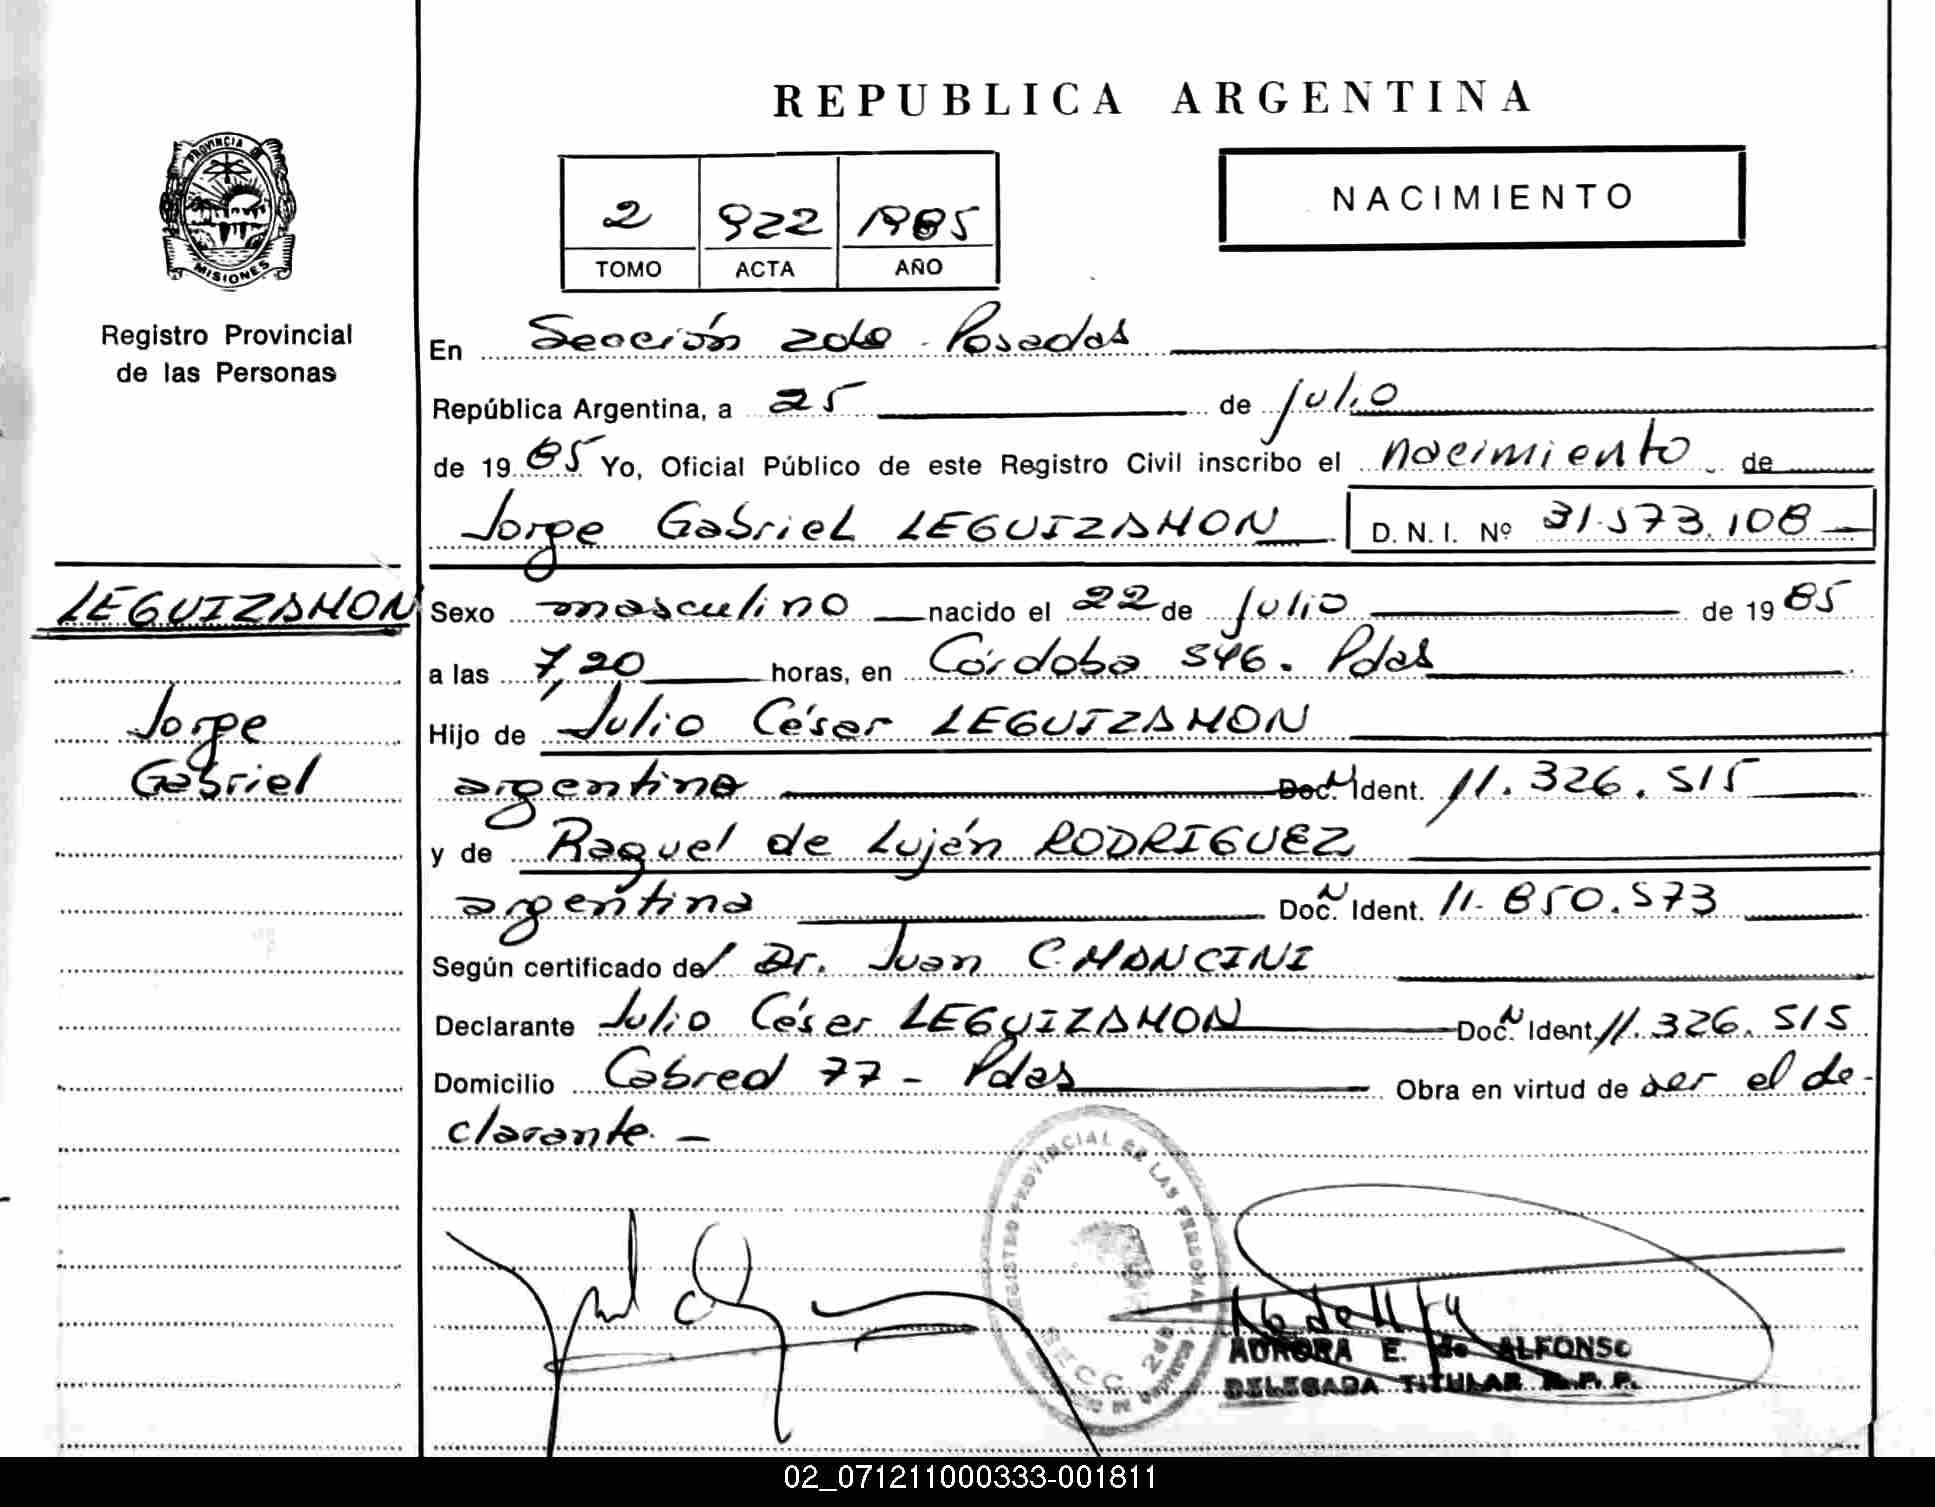 REPUBLICA ARGENTINA
PROVINCIA DE
MISIONES
Registro Provincial
de las Personas
2 922 1985
TOMO ACTA AÑO
NACIMIENTO
En Sección 2da Posadas
República Argentina, a 25 de julio
de 1985 Yo, Oficial Público de este Registro Civil inscribo el nacimiento de
Jorge Gabriel LEGUIZAMON D. N. I. Nº 31.573.108
LEGUIZAMON
Jorge
Gabriel
Sexo masculino nacido el 22 de julio de 1985
a las 7,20 horas, en Córdoba 546. Pdas
Hijo de Julio César LEGUIZAMON
argentino Doc. Ident. 11.326.515
y de Raquel de Luján RODRIGUEZ
argentina Doc. Ident. 11.850.573
Según certificado del Dr. Juan C. MANCINI
Declarante Julio César LEGUIZAMON Doc. Ident. 11.326.515
Domicilio Cabred 77 - Pdas Obra en virtud de ser el de-
clarante. -
REGISTRO PROVINCIAL DE LAS PERSONAS
SECC. 2da
AURORA E. de ALFONSO
DELEGADA TITULAR R. P. P.
02_071211000333-001811